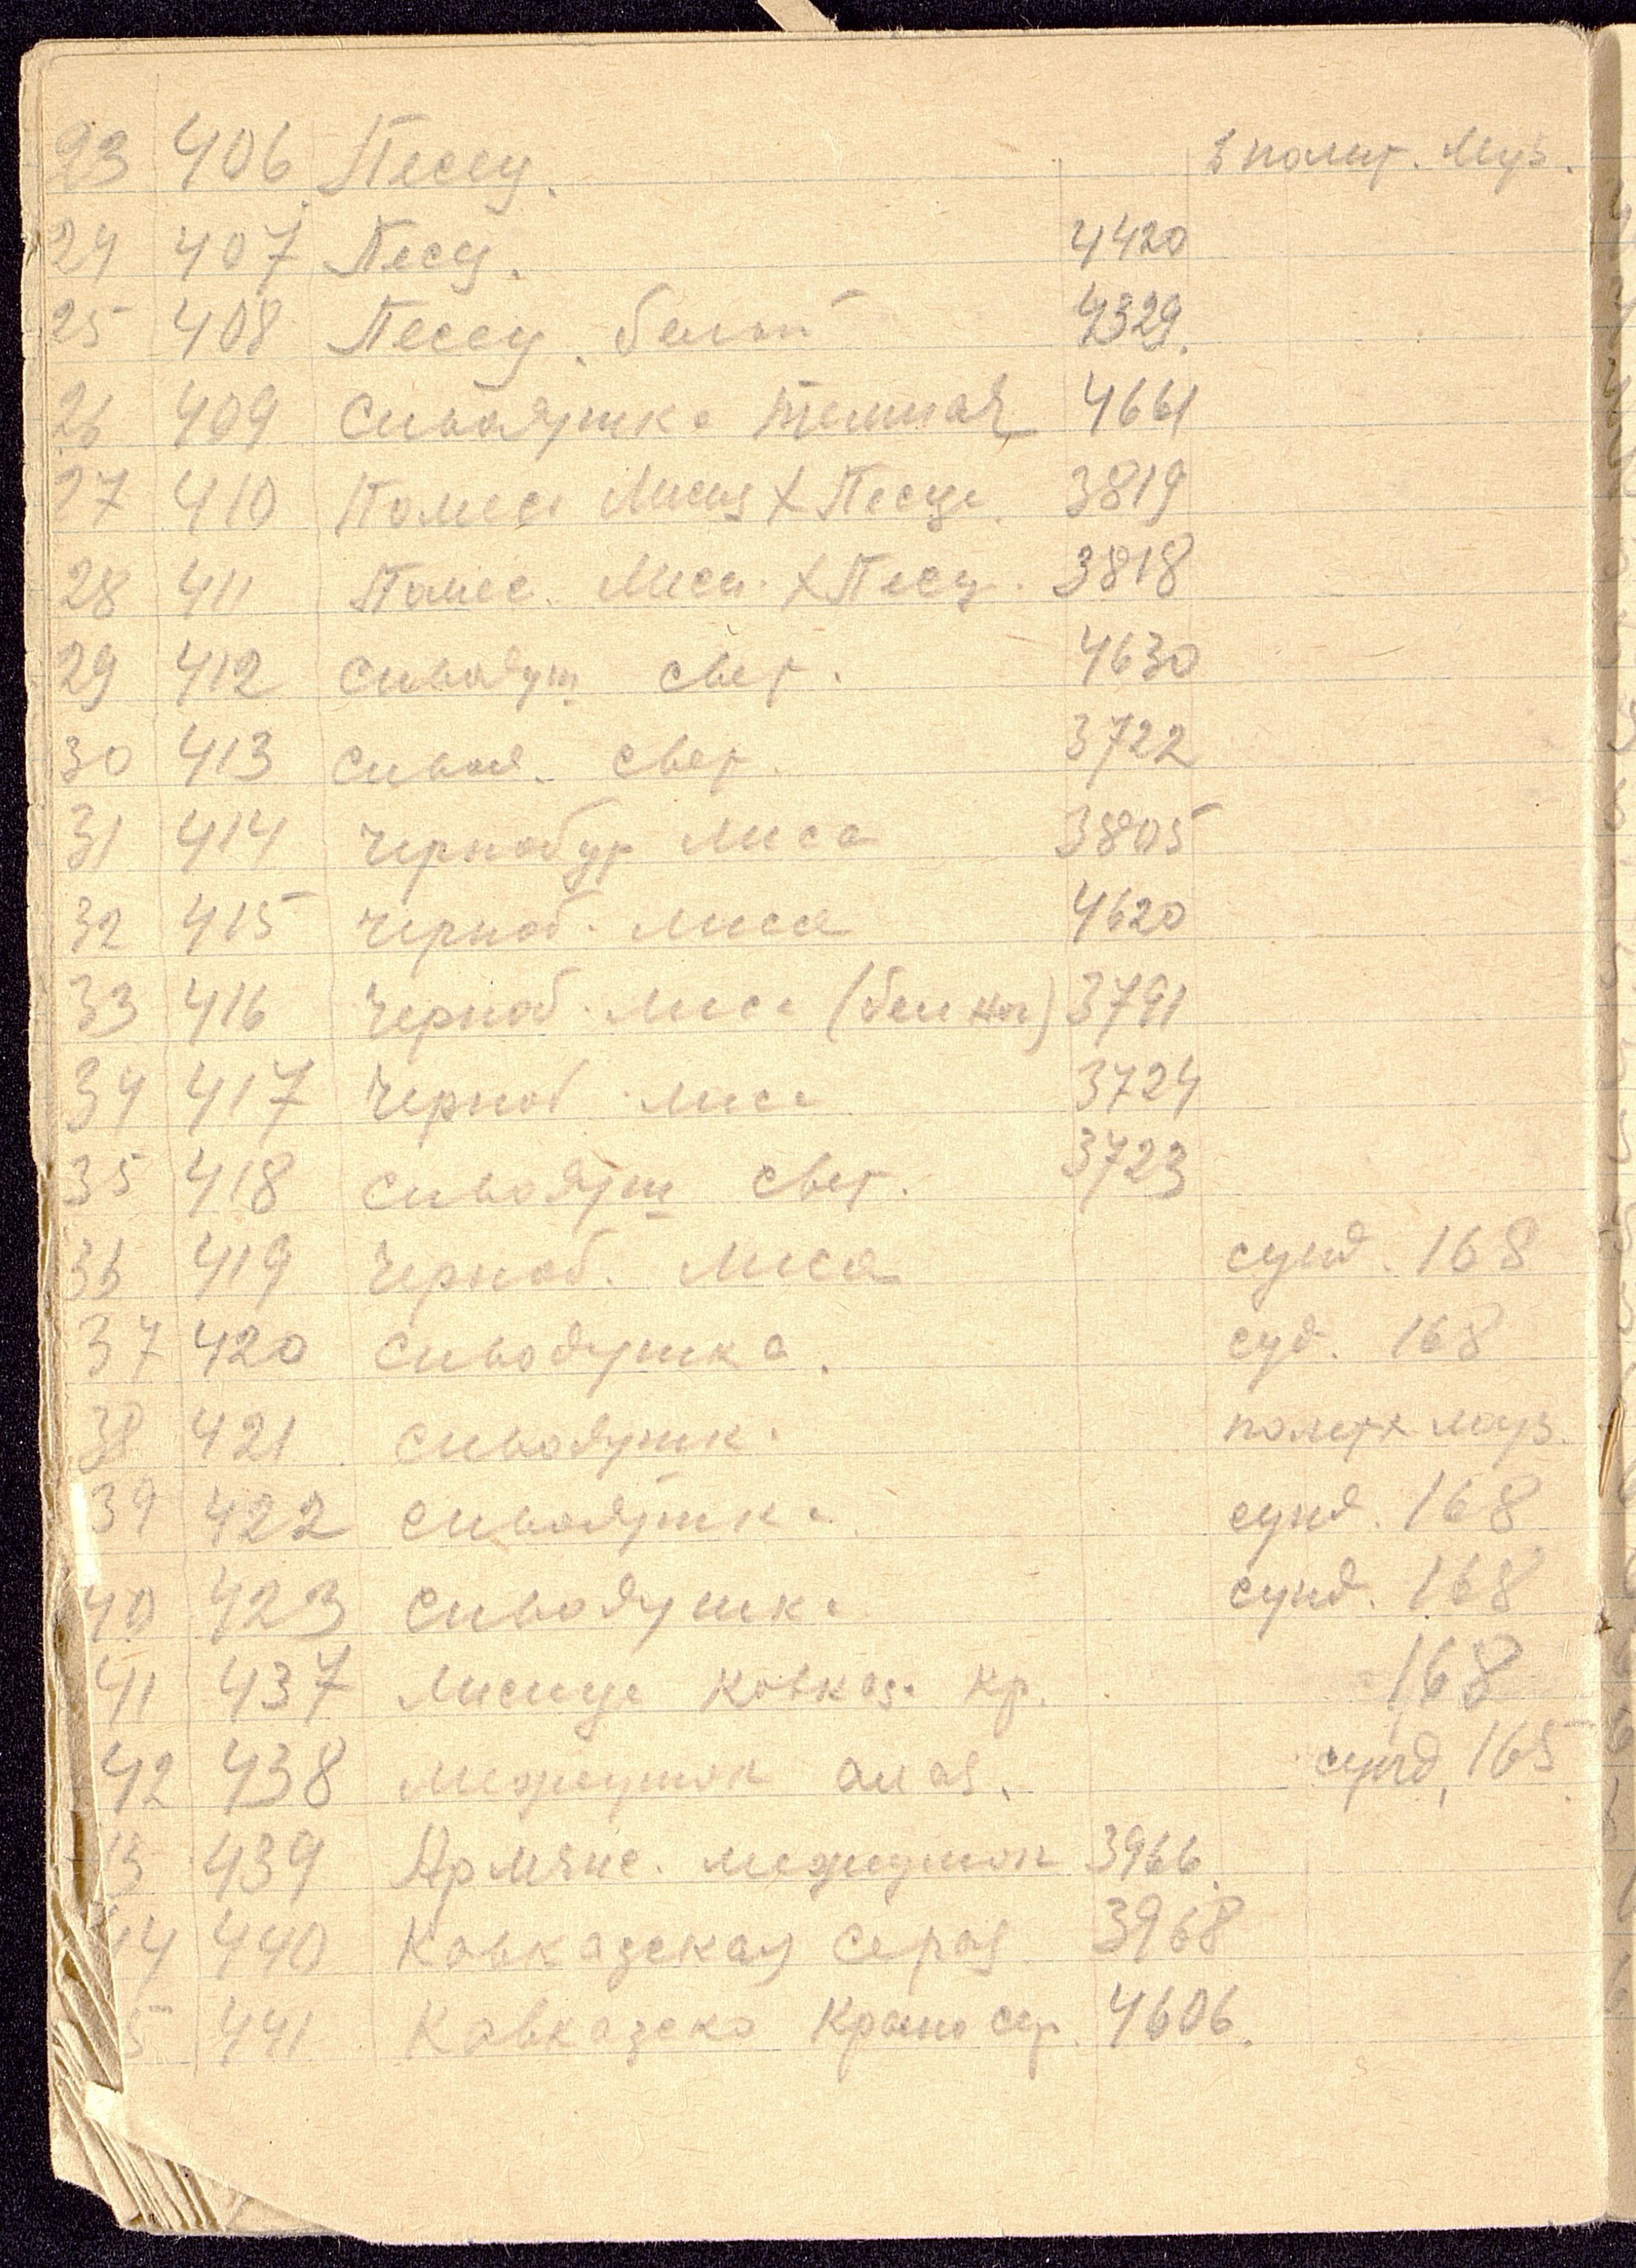 23 406 Песец. в полит. Муз.
24 407 Песц. 4420
25 408 Песец. белый 4329.
26 409 Сиводушка темная 4661
27 410 Помесь Лисиц х Песца. 3819
28 411 Помес. Лиси. х Песц. 3818
29 412 Сиводуш свет. 4630
30 413 Сивод. свет. 3722
31 414 Чернобур лиса 3805
32 415 Черноб. лиса 4620
33 416 Черноб. лиса 3791
34 417 Черноб. лиса 3724
35 418 Сиводуш свет. 3723
36 419 Черноб. лиса сунд. 168
37 420 Сиводушка. суд. 168
38 421 Сиводушк. муз.
39 422 Сиводушка. сунд. 168
40 423 Сиводушка сунд. 168
41 437 Лисица Кавказ. кр. 168
42 438 межеумок сунд. 165
13 439 Армянс. межеумок 3966.
14 440 Кавказская серая 3968
5 441 Кавказско 4606.